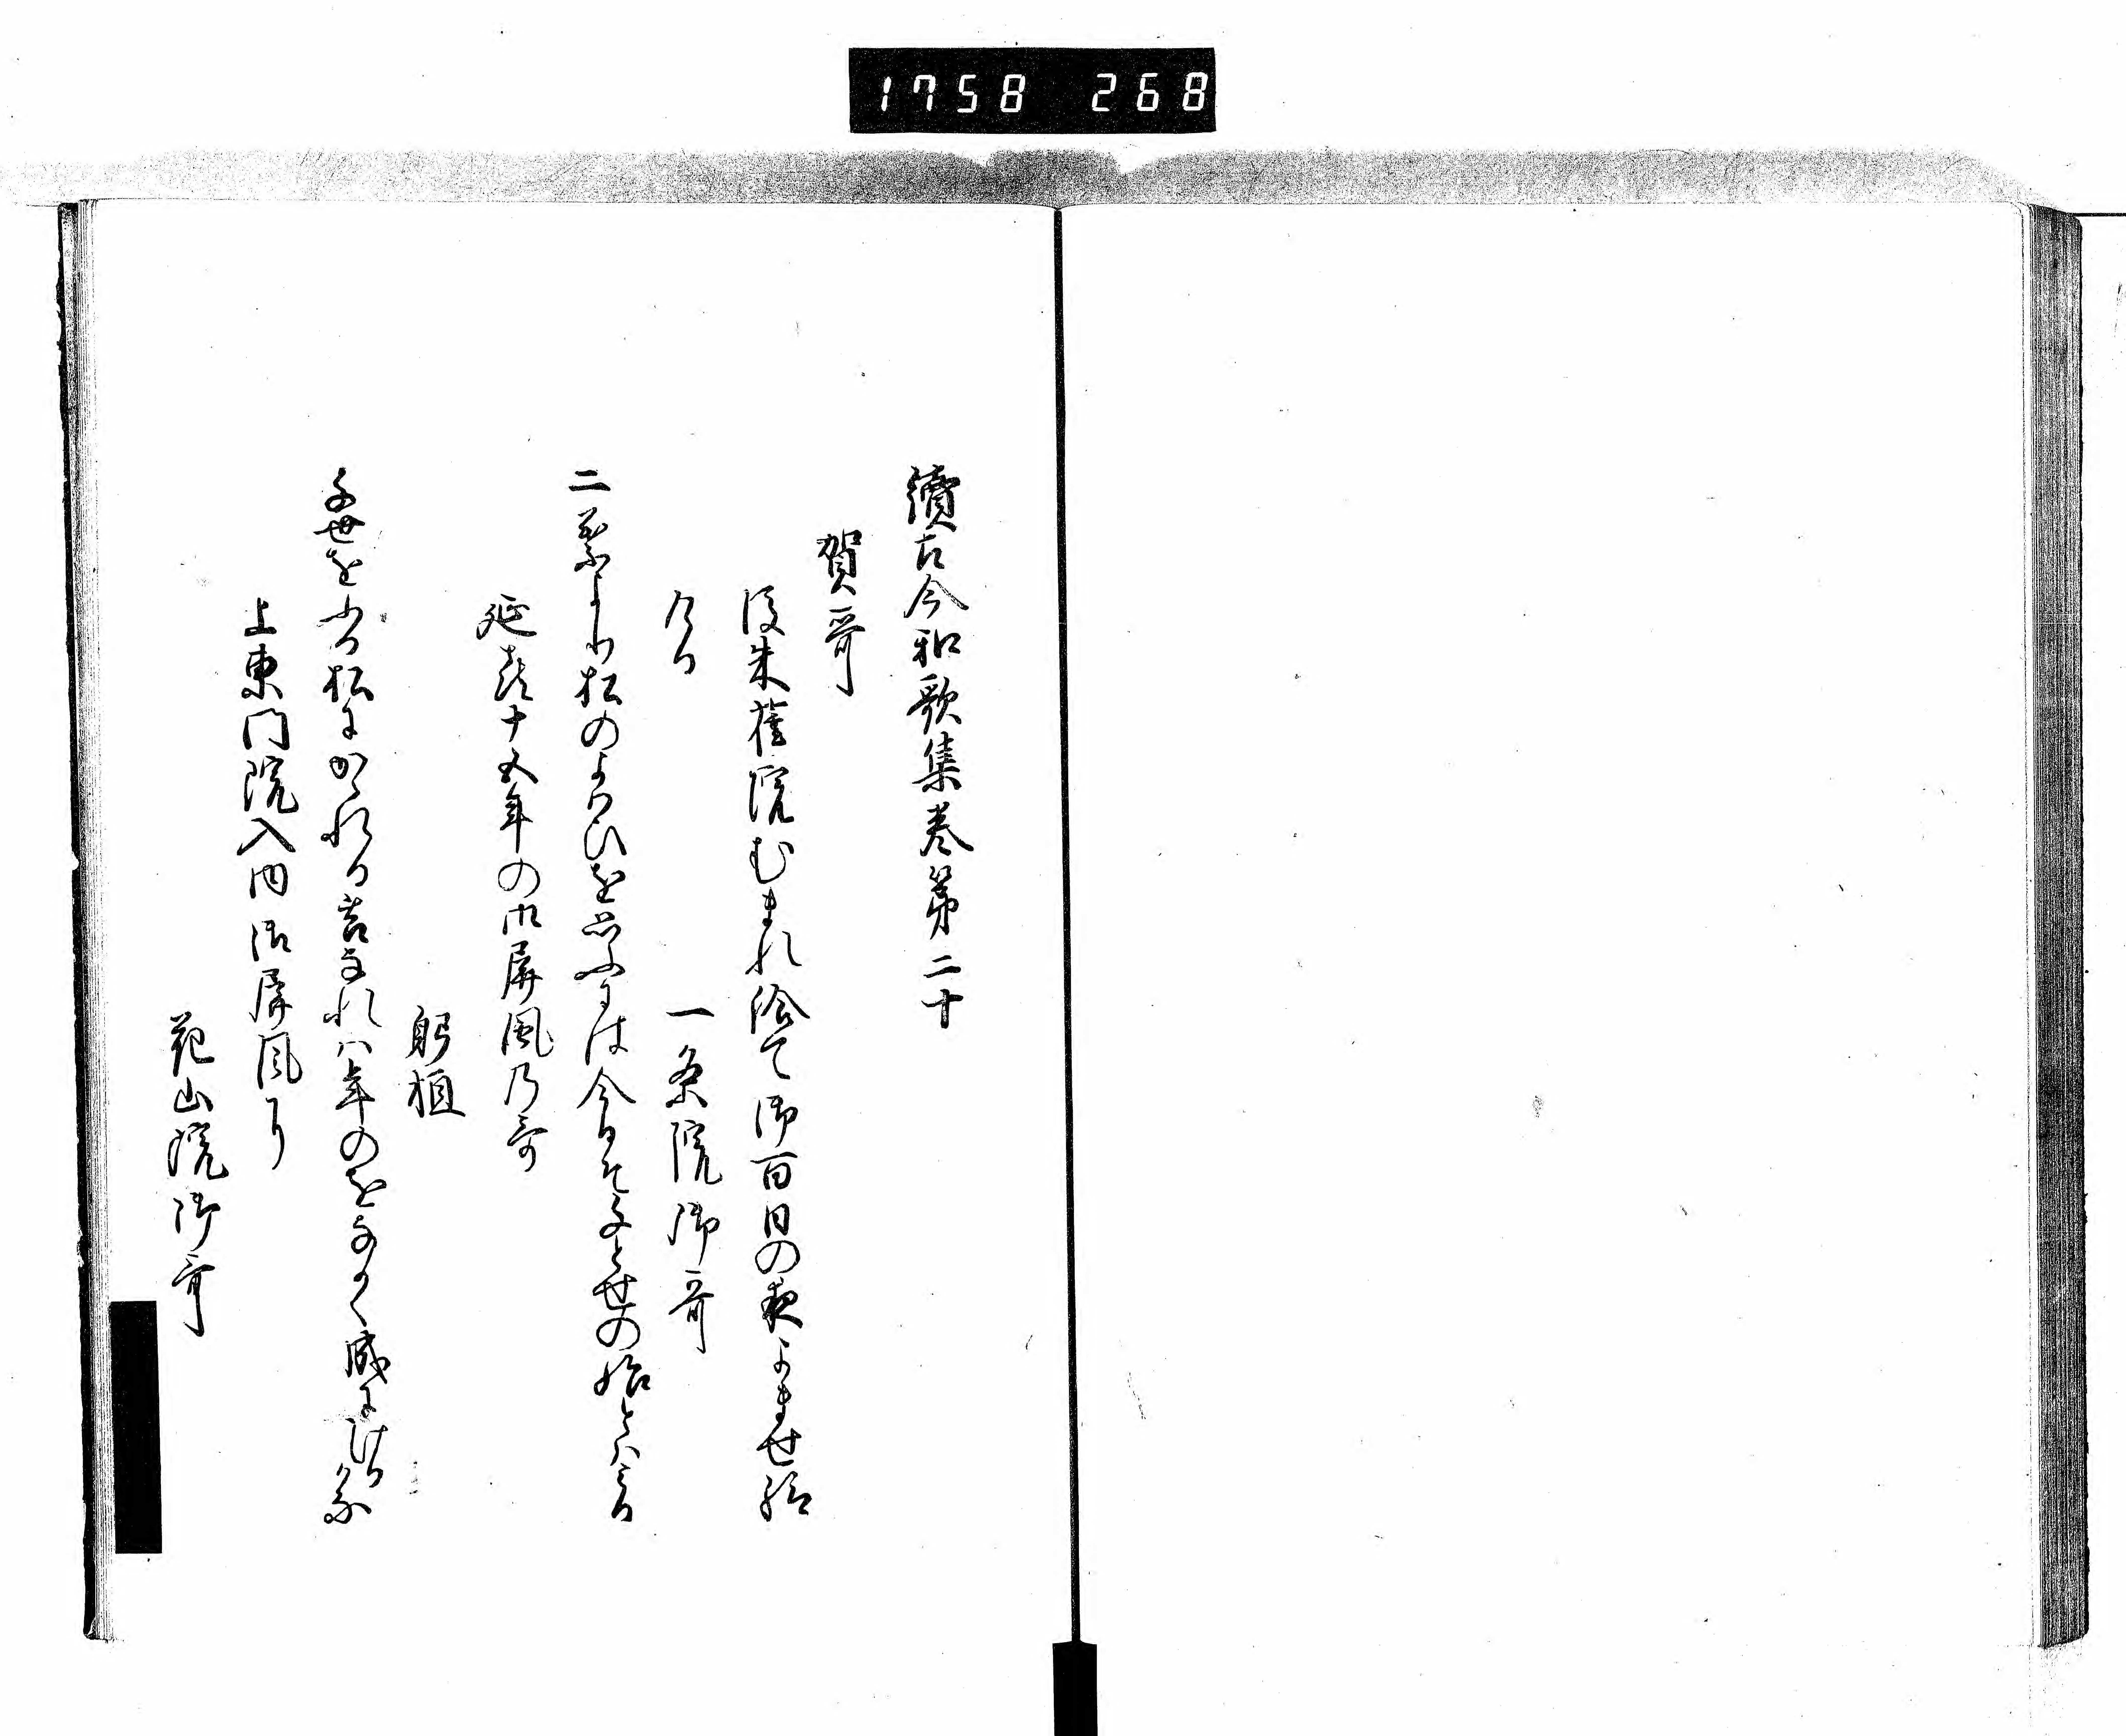 1758 268
續古今和歌集巻第二十
賀哥
後朱雀院むまれ給て御百日の夜よませ給
ける
一条院御哥
二葉より松のよはひを思ふには今日そ千とせの始とはみる
延喜十五年の御屏風乃哥
躬恒
千世をふる松にかゝれる苔なれハ年のをなかく成にける哉
上東門院入内御屏風に
花山院御哥